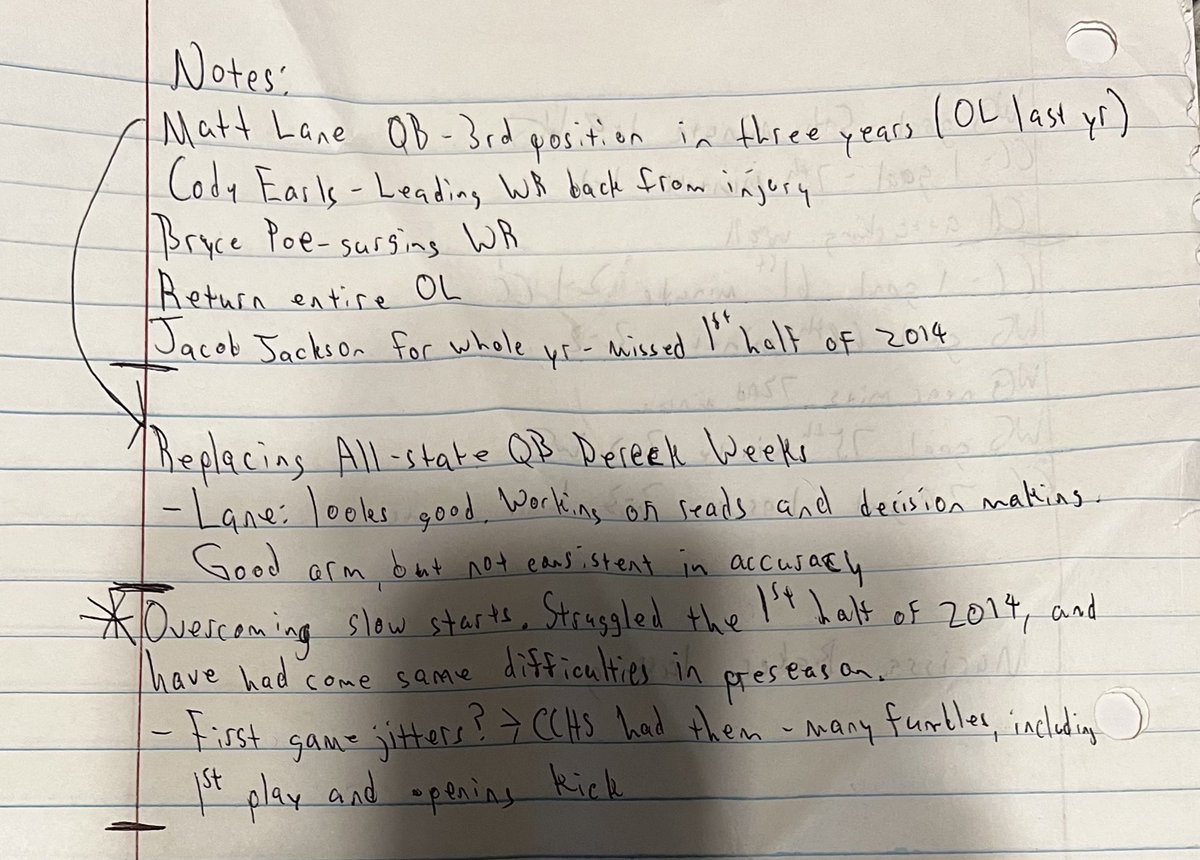 Notes:
Matt Lane QB - 3rd position in three years (OL last yr)
Cody Earls - Leading WR back from injury
Bryce Poe - surging WR
Return entire OL
Jacob Jackson for whole yr - missed 1st half of 2014
Replacing All-state QB Dereek Weeks
- Lane: looks good. Working on reads and decision making.
Good arm, but not consistent in accuracy
* Overcoming slow starts. Struggled the 1st half of 2014, and
have had come same difficulties in preseason.
- First game jitters? → CCHS had them - many fumbles, including
1st play and opening kick